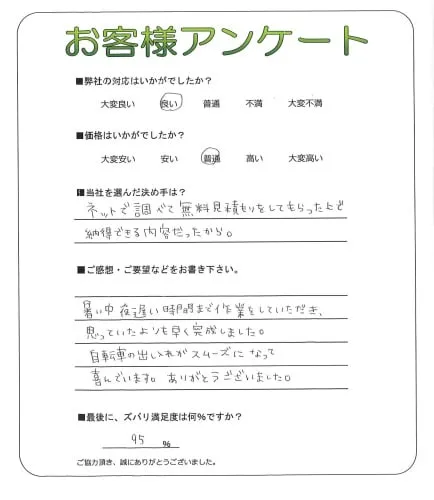 お客様アンケート
■弊社の対応はいかがでしたか？
大変良い 良い 普通 不満 大変不満
■価格はいかがでしたか？
大変安い 安い 普通 高い 大変高い
■当社を選んだ決め手は？
ネットで調べて無料見積もりをしてもらった上で
納得できる内容だったから。
■ご感想・ご要望などをお書き下さい。
暑い中夜遅い時間まで作業をしていただき、
思っていたよりも早く完成しました。
自転車の出し入れがスムーズになって
喜んでいます。ありがとうございました。
■最後に、ズバリ満足度は何%ですか？
95 %
ご協力頂き、誠にありがとうございました。